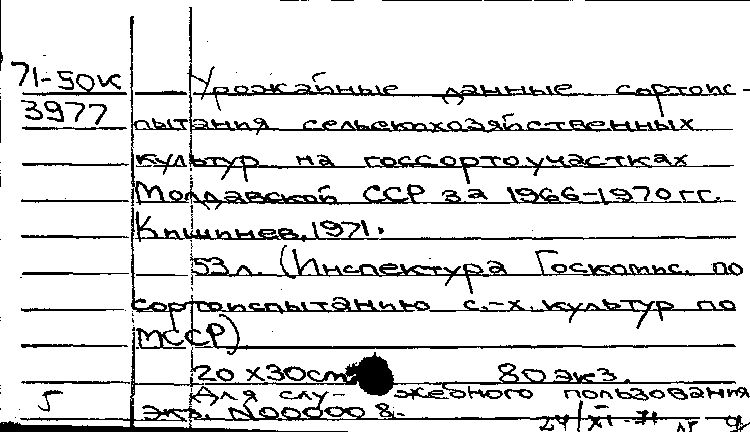 71-50к
3977
Урожайные данные сортоис-
пытания сельскохозяйственных
культур на госсортоучастках
Молдавской ССР за 1966-1970 гг.
Кишинев, 1971.
53 л. (Инспектура Госкомис. по
сортоиспытанию с.-х. культур по
МССР)
20 х 30 см 80 экз.
Для слу- жебного пользования
5 Экз. N 000008.
24/XI-71